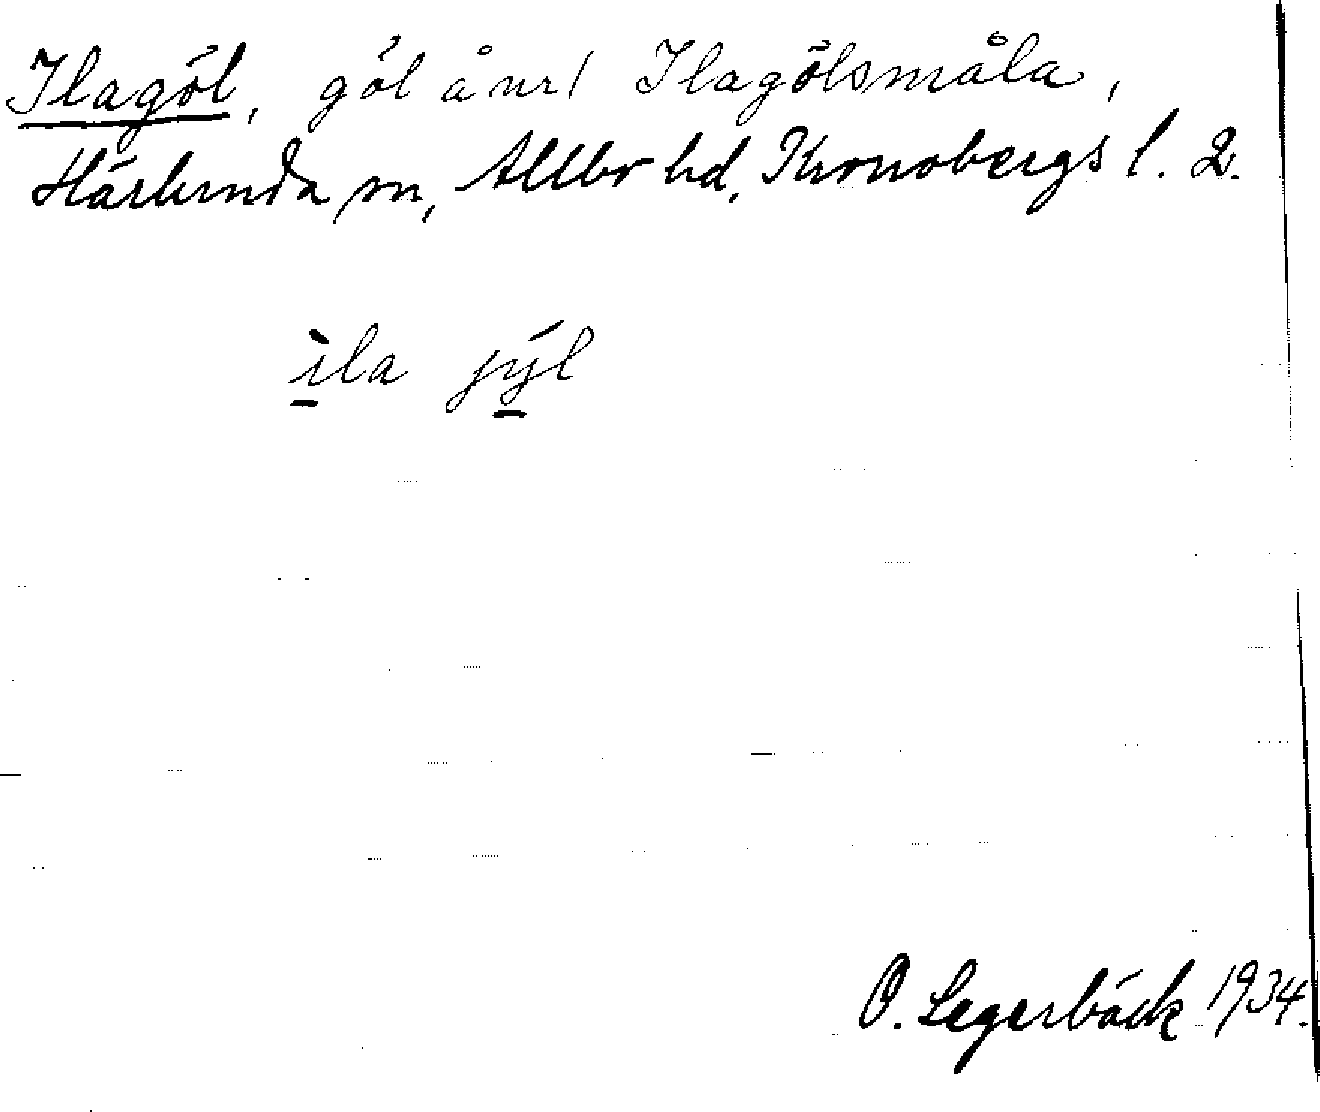 Ilagöl, göl å nr 1 Ilagölsmåla,
Härlunda sn, Allbo hd, Kronobergs l. 2.
ìla jýl
O. Legerbäck 1934.